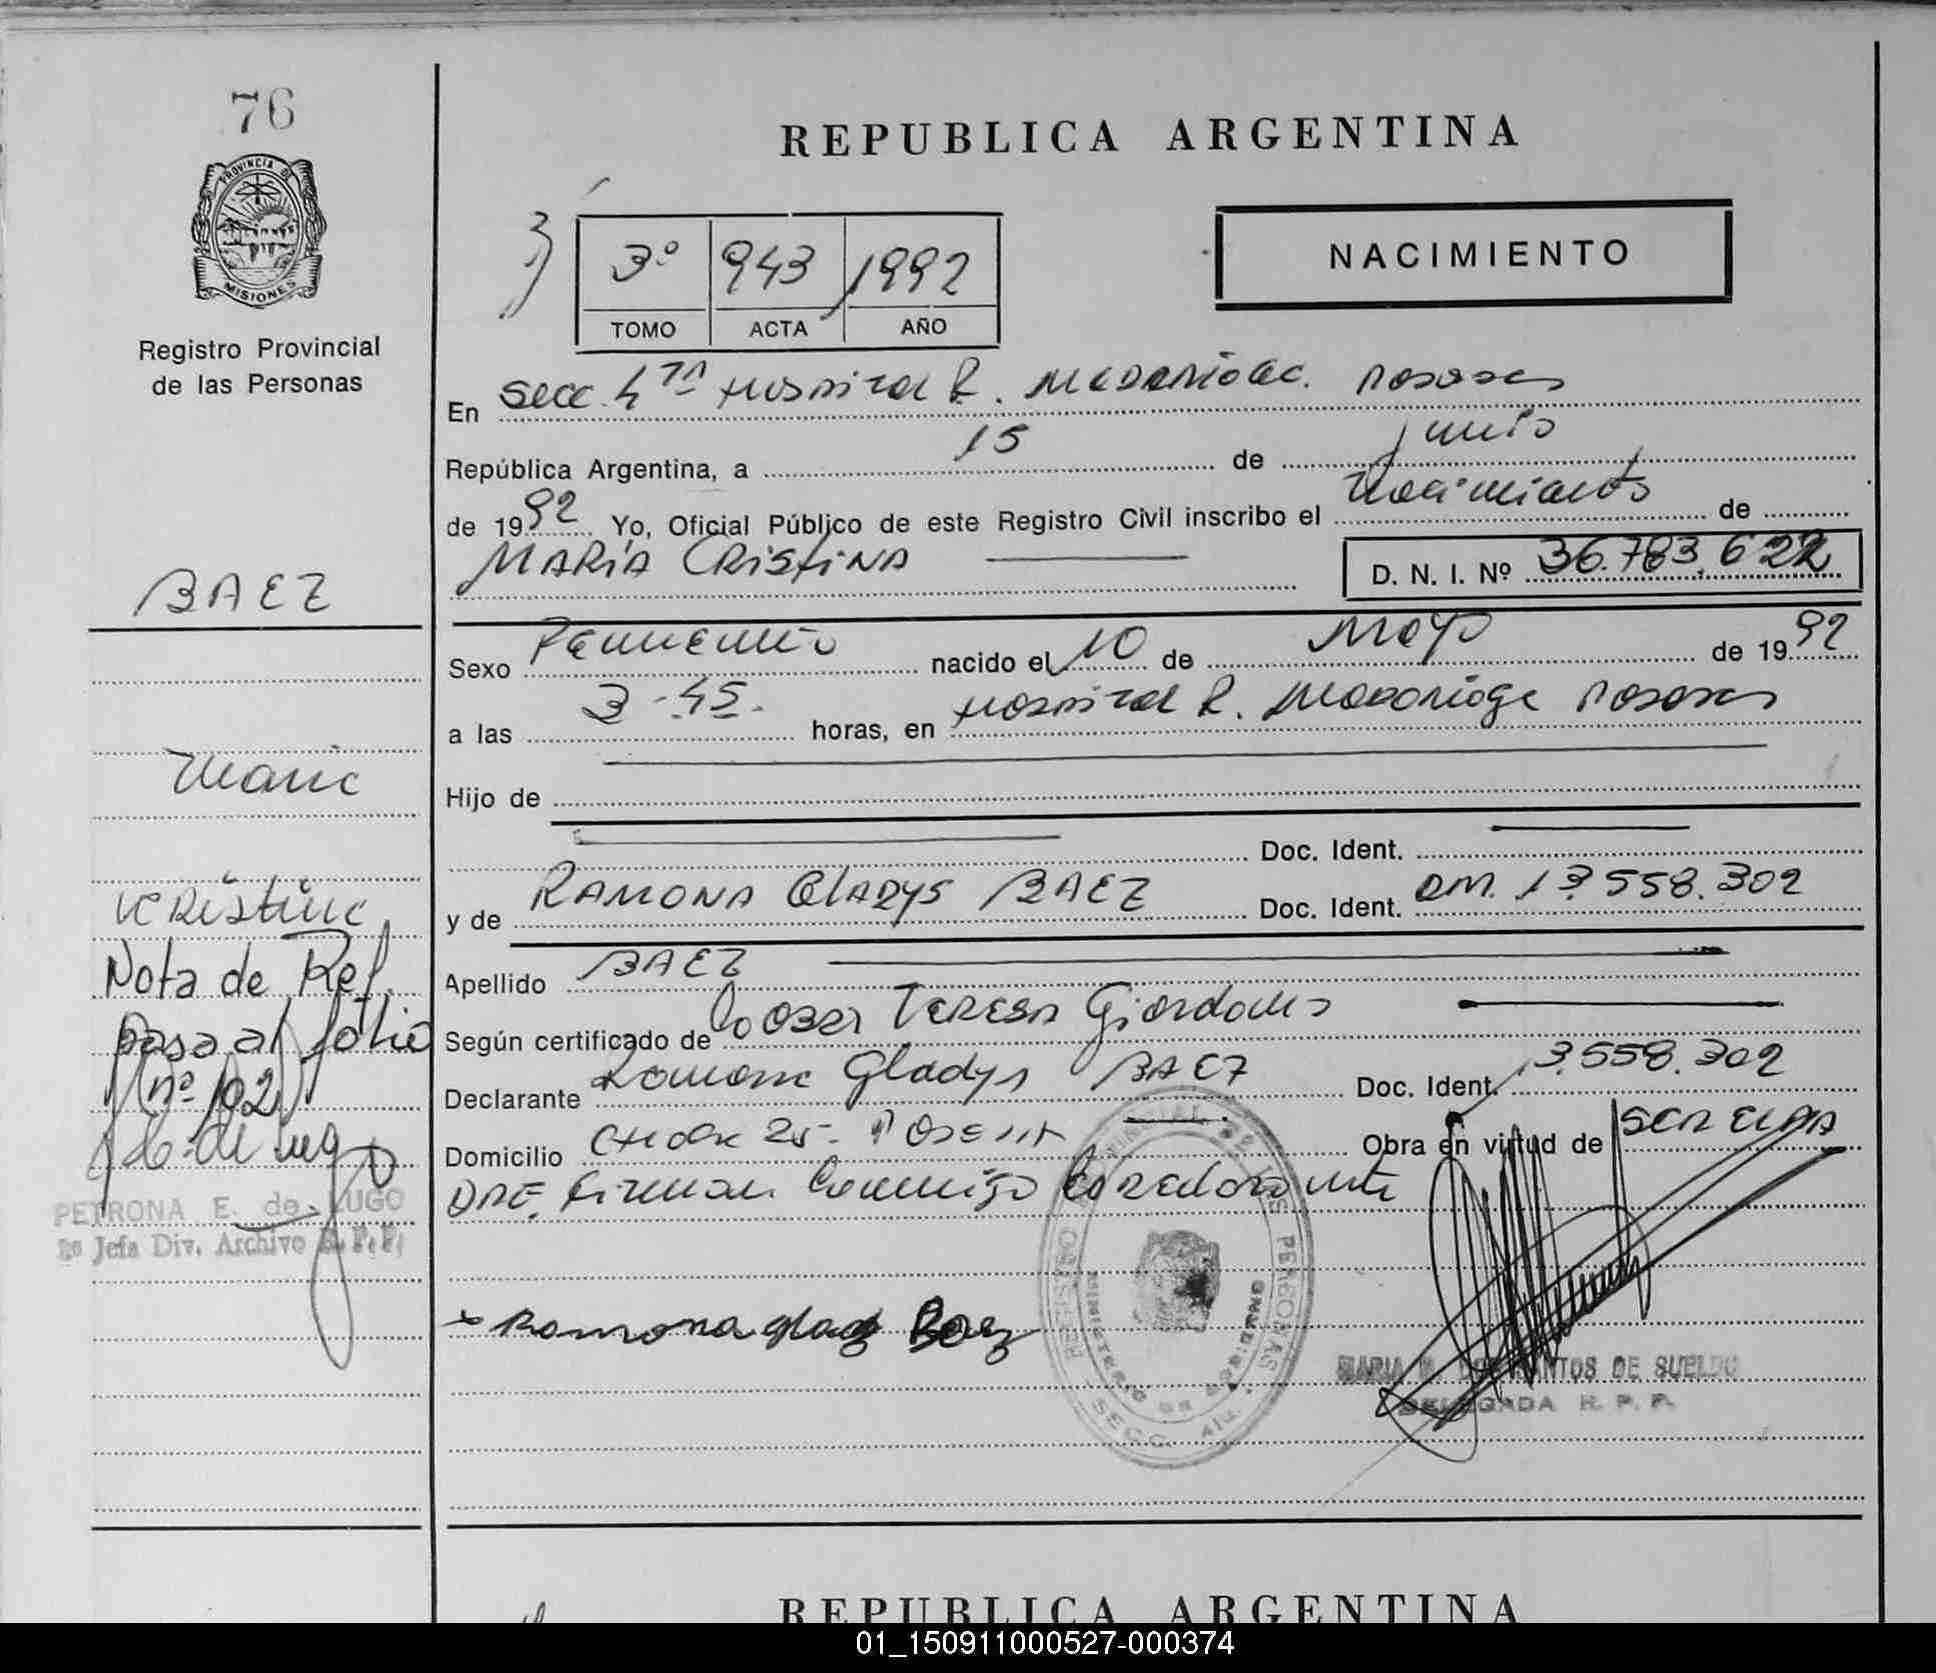 76
PROVINCIA DE
MISIONES
Registro Provincial
de las Personas
BAEZ
Maria
Cristina
Nota de Ref.
pasa al folio
nº 102
E. de Lugo
PETRONA E. de LUGO
Jefa Div. Archivo R.P.P.
REPUBLICA ARGENTINA
3º 943 1992
TOMO ACTA AÑO
NACIMIENTO
En Secc. 4ta Hospital R. Madariaga. Posadas
República Argentina, a 15 de junio
de 1992 Yo, Oficial Público de este Registro Civil inscribo el Nacimiento de
MARIA CRISTINA D. N. I. Nº 36.783.622
Sexo Femenino nacido el 10 de Mayo de 1992
a las 3-45. horas, en Hospital R. Madariaga Posadas
Hijo de
Doc. Ident.
y de RAMONA GLADYS BAEZ Doc. Ident. DNI. 13.558.302
Apellido BAEZ
Según certificado de TERESA Giordano
Declarante Ramona Gladys BAEZ Doc. Ident. 13.558.302
Domicilio CHACRA 25- Obra en virtud de
Firman Conmigo
Ramona glady Baez
REGISTRO PROVINCIAL DE LAS PERSONAS
MINISTERIO DE GOBIERNO
SECC. 4ta.
MARIA DOS SANTOS DE SUELDO
DELEGADA R. P. P.
REPUBLICA ARGENTINA
01_150911000527-000374